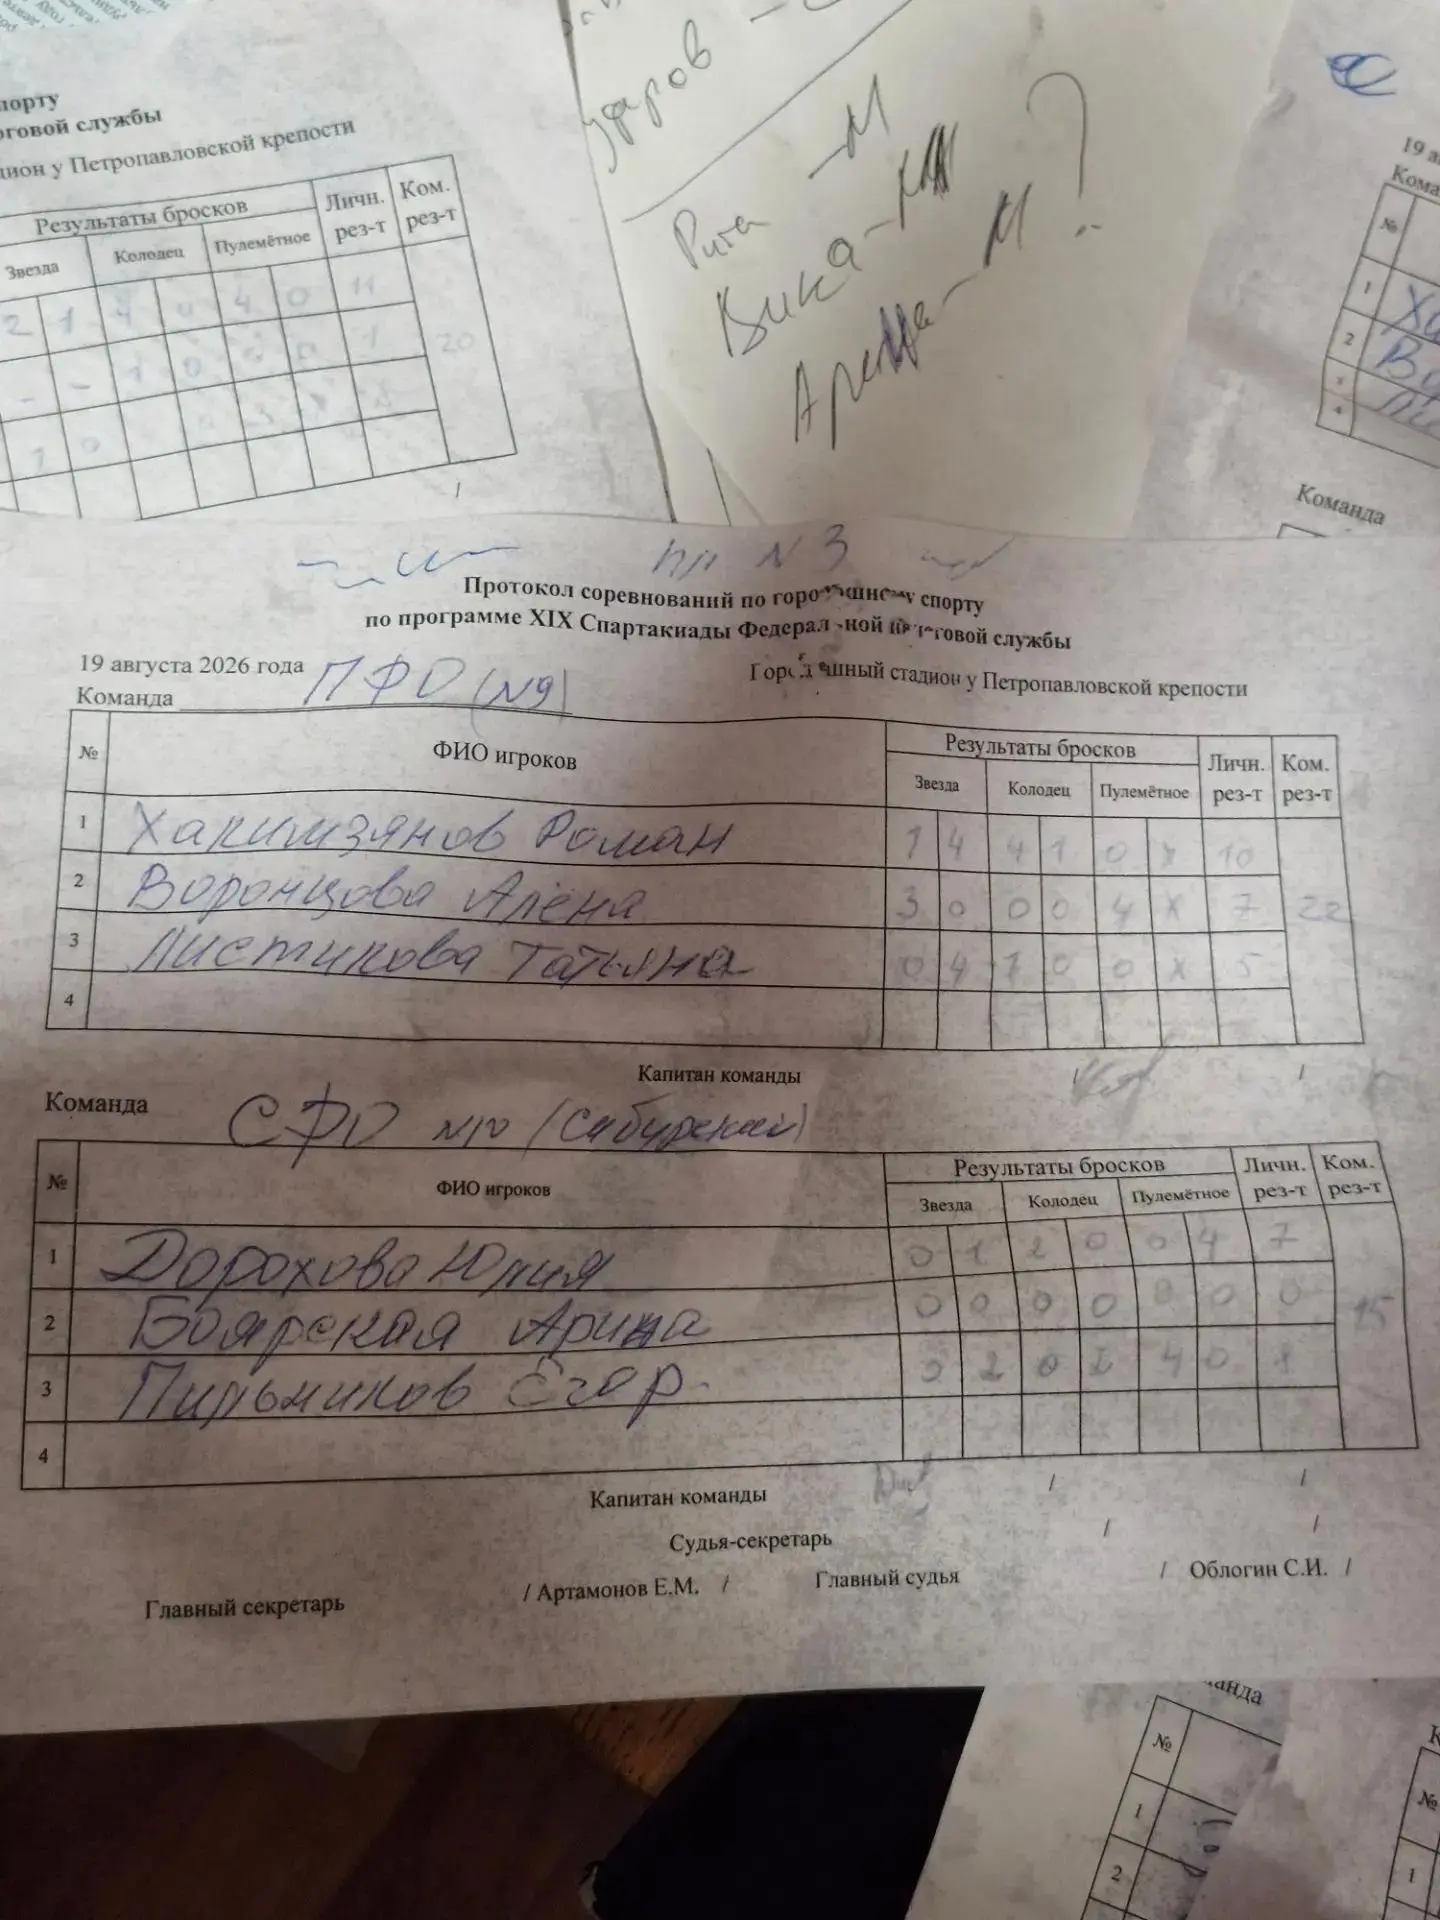 порту
рговой службы
дион у Петропавловской крепости
Результаты бросков Личн. рез-т Ком. рез-т
Звезда Колодец Пулемётное
2 1 4 0 4 0 11
- - 1 0 0 0 1 20
1 0
Рита - М
Вика -
Арина - М ?
19 а
Кома
№
1 Ха
2 Во
3 Ли
4
Команда
пл N 3
Протокол соревнований по городошному спорту
по программе XIX Спартакиады Федеральной налоговой службы
19 августа 2026 года Городошный стадион у Петропавловской крепости
Команда ПФО (N9)
№ ФИО игроков Результаты бросков Личн. рез-т Ком. рез-т
Звезда Колодец Пулемётное
1 Хакимзянов Роман 1 4 4 1 0 х 10
2 Воронцова Алёна 3 0 0 0 4 х 7 22
3 Листикова Татьяна 0 4 1 0 0 х 5
4
Капитан команды /
Команда СФО N10 (Сибирский)
№ ФИО игроков Результаты бросков Личн. рез-т Ком. рез-т
Звезда Колодец Пулемётное
1 Дорохова Юлия 0 1 2 0 0 4 7
2 Боярская Арина 0 0 0 0 0 0 0 15
3 Пильников Егор. 0 2 0 2 4 0 8
4
Капитан команды / /
Судья-секретарь / /
Главный секретарь / Артамонов Е.М. / Главный судья / Облогин С.И. /
манда
№
1
2
К
№
1